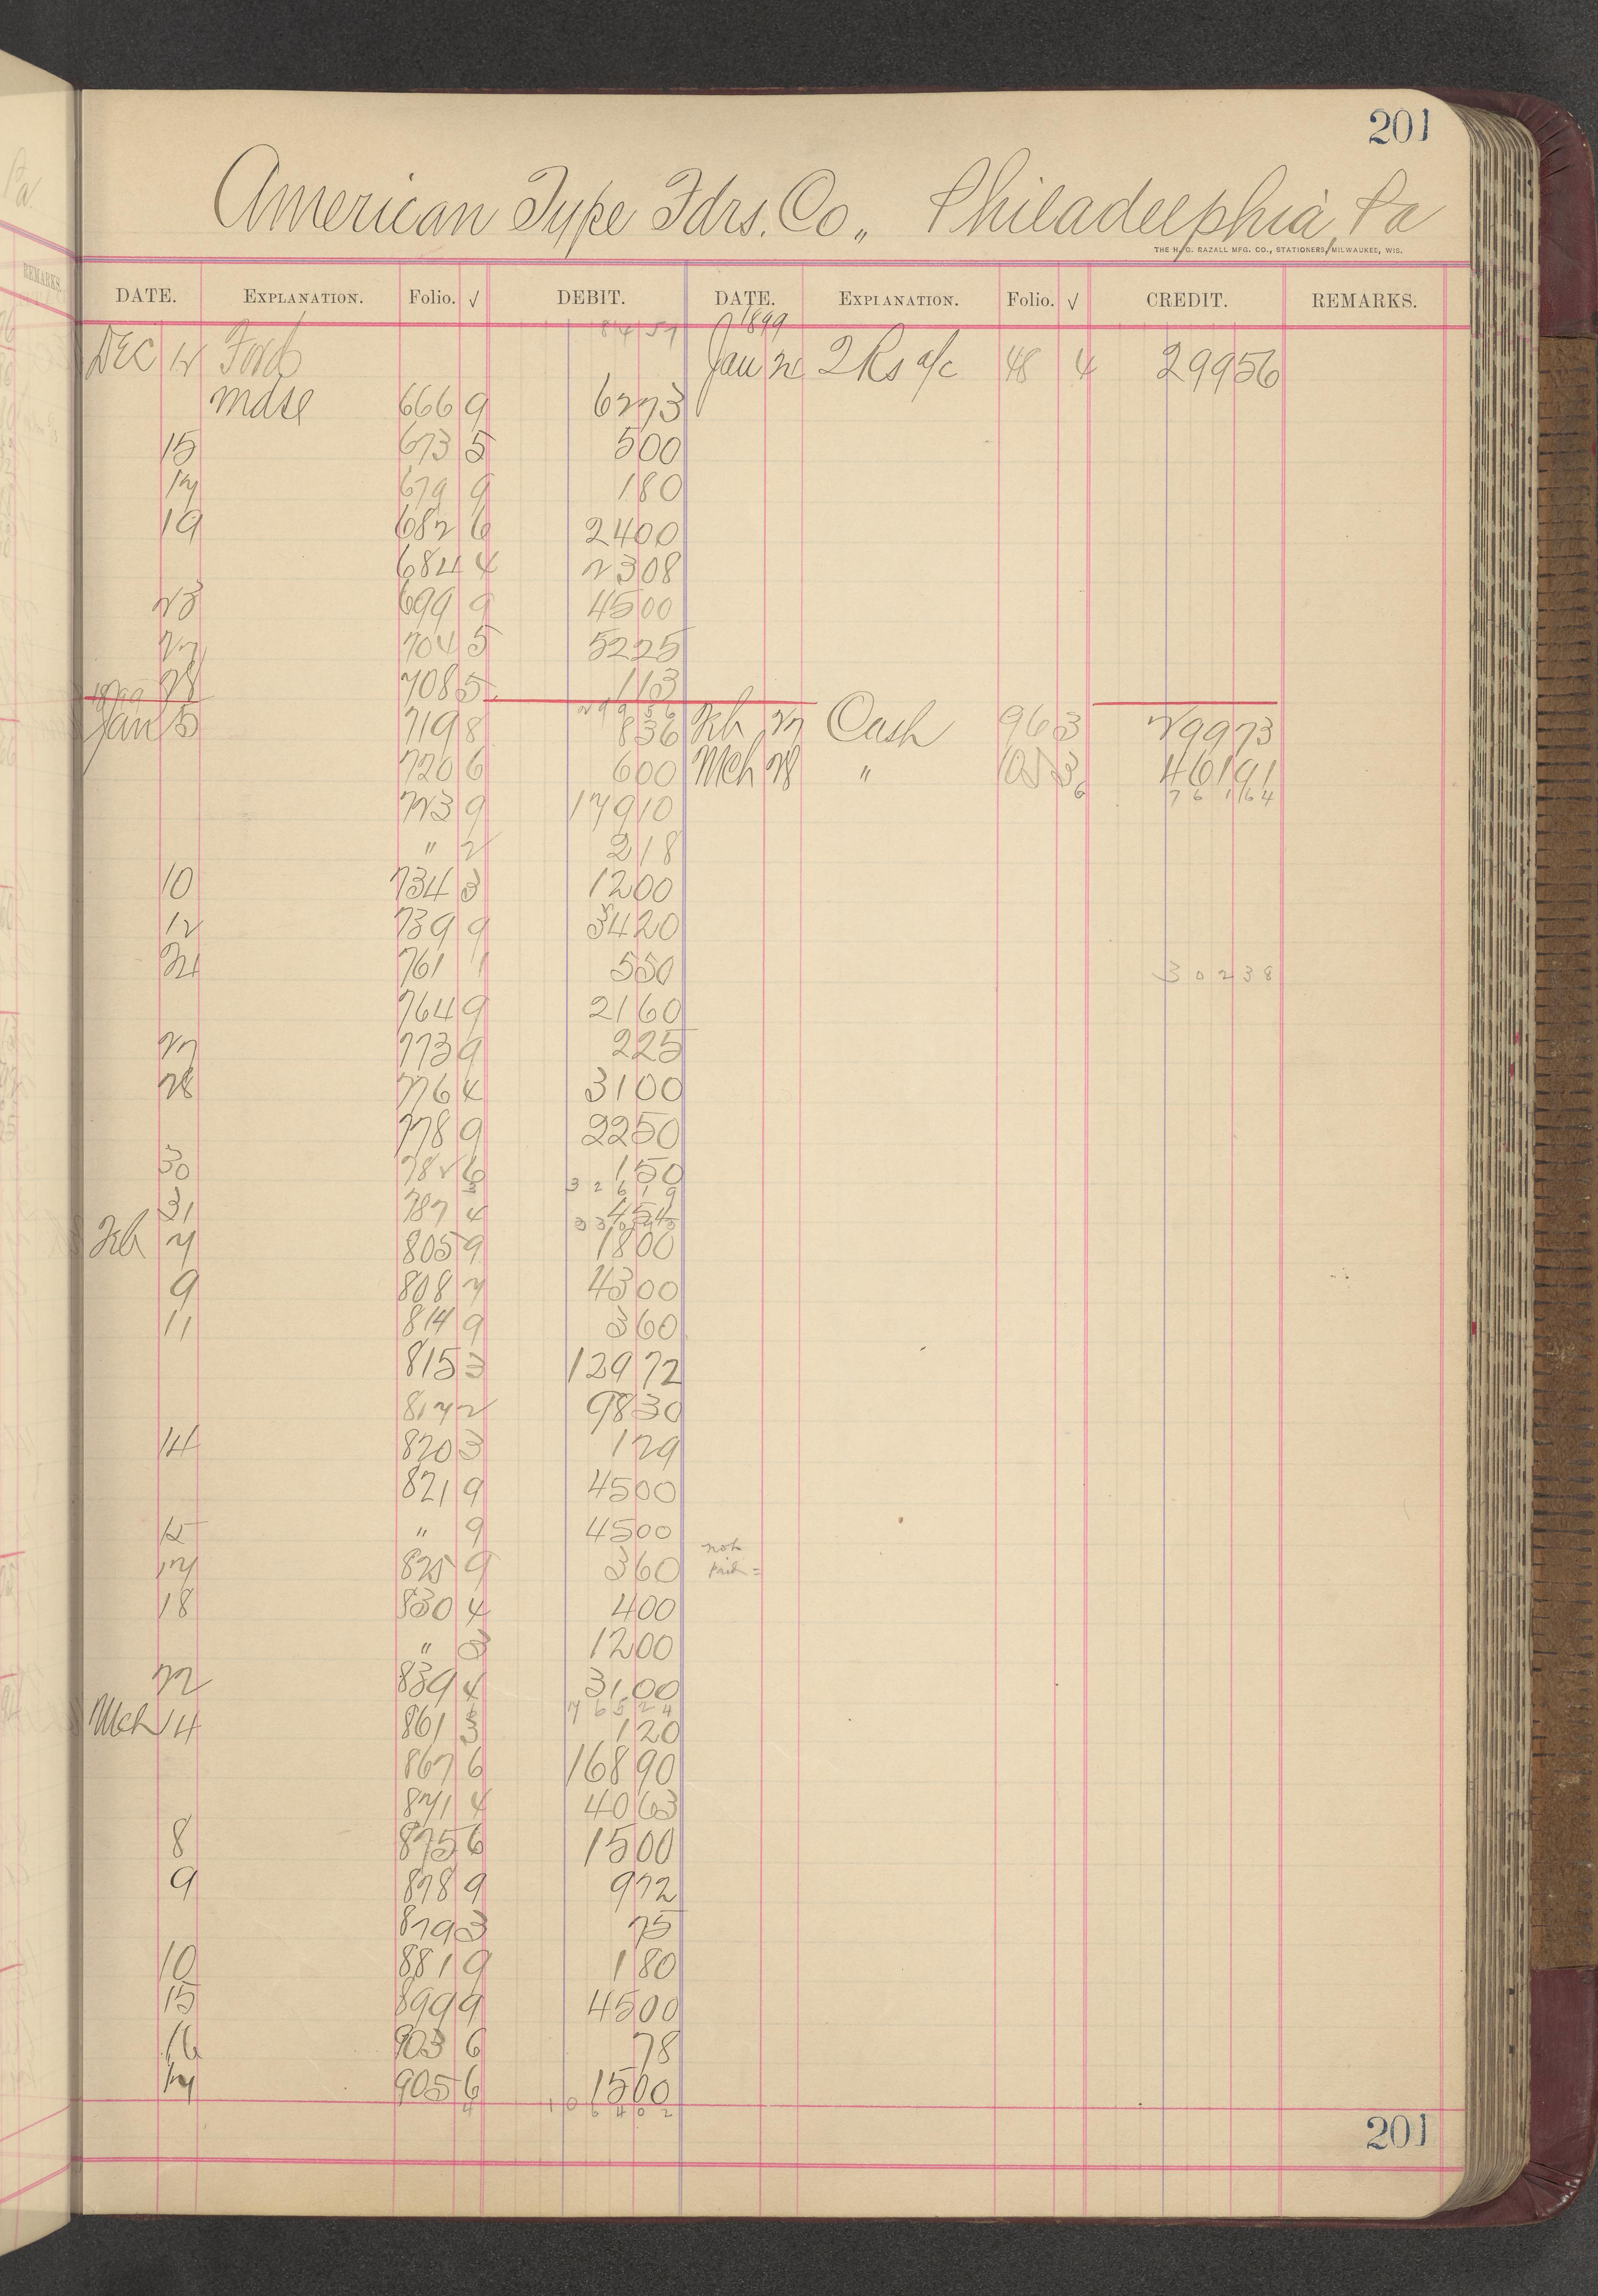 201
American Type Fdrs. Co., Philadelphia, Pa
THE H. G. RAZALL MFG. CO., STATIONERS, MILWAUKEE, WIS.
DATE. EXPLANATION. Folio. √ DEBIT. DATE. EXPLANATION. Folio. √ CREDIT. REMARKS.
1899
DEC 12 Ford 8457 Jan 20 2Rs a/c 48 4 29956
Mdse 666 9 6273
15 673 5 500
17 679 9 180
19 682 6 2400
684 4 2308
23 699 9 4500
27 704 5 5225
28 708 5 113
29956
1899
Jan 5 719 8 836 Feb 27 Cash 96 3 29973
720 6 600 Mch 28 " 105 3 46191
6 76164
723 9 17910
" 2 218
10 734 3 1200
12 739 9 3420
24 761 1 550 30238
764 9 2160
27 773 9 225
28 776 4 3100
778 9 2250
30 782 6 150
32619
31 787 4 454
Feb 7 805 9 1800
9 808 7 4300
11 814 9 360
815 3 12972
817 2 9830
14 820 3 129
821 9 4500
15 " 9 4500
not
17 825 9 360 paid =
18 830 4 400
" 3 1200
22 839 4 3100
76524
Mch 4 861 3 120
867 6 16890
871 4 4063
8 875 6 1500
9 878 9 972
879 3 75
10 881 9 180
15 899 9 4500
16 903 6 78
17 905 6 1500
4 106402
201